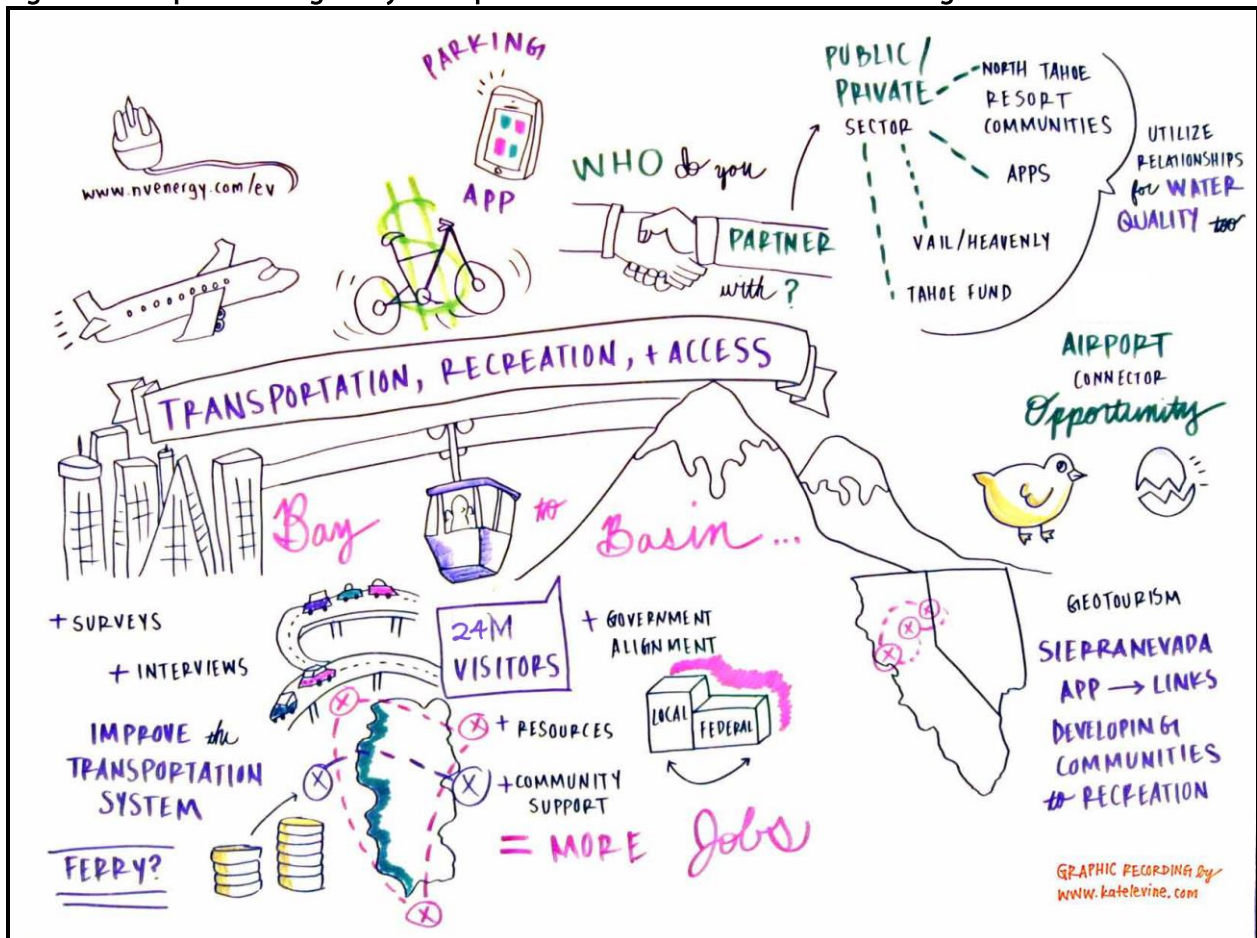 PARKING
APP
www.nvenergy.com/ev
WHO do you
PARTNER
with?
PUBLIC/
PRIVATE
SECTOR
NORTH TAHOE
RESORT
COMMUNITIES
APPS
VAIL/HEAVENLY
TAHOE FUND
UTILIZE
RELATIONSHIPS
for WATER
QUALITY too
TRANSPORTATION, RECREATION, + ACCESS
AIRPORT
CONNECTOR
Opportunity
Bay to Basin...
+ SURVEYS
+ INTERVIEWS
24M
VISITORS
+ GOVERNMENT
ALIGNMENT
LOCAL
FEDERAL
IMPROVE the
TRANSPORTATION
SYSTEM
+ RESOURCES
+ COMMUNITY
SUPPORT
= MORE Jobs
FERRY?
GEOTOURISM
SIERRANEVADA
APP → LINKS
DEVELOPING
COMMUNITIES
to RECREATION
GRAPHIC RECORDING by
www.katelevine.com